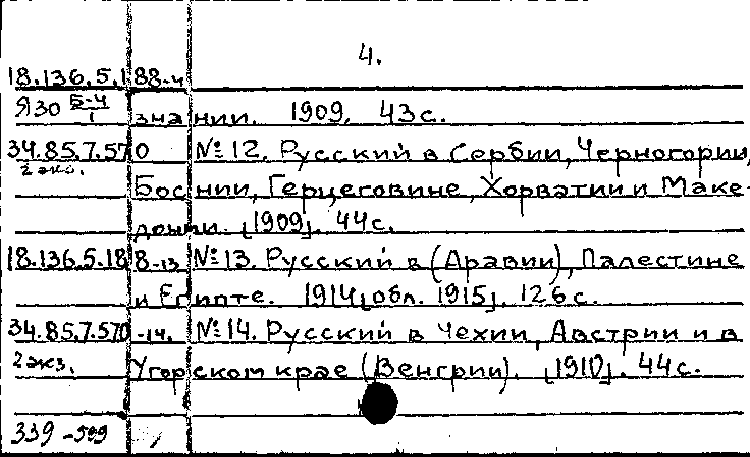 4.
18.136.5.188-4
Я30 Б-4/1 знании. 1909. 43с.
34.85.7.570 №12. Русский в Сербии, Черногории,
2 экз. Боснии, Герцеговине, Хорватии и Маке-
донии. [1909]. 44с.
18.136.5.188-13 №13. Русский в (Аравии), Палестине
и Египте. 1914[обл. 1915]. 126с.
34.85.7.570-14. №14. Русский в Чехии, Австрии и в
2 экз. Угорском крае (Венгрии). [1910]. 44с.
339-599